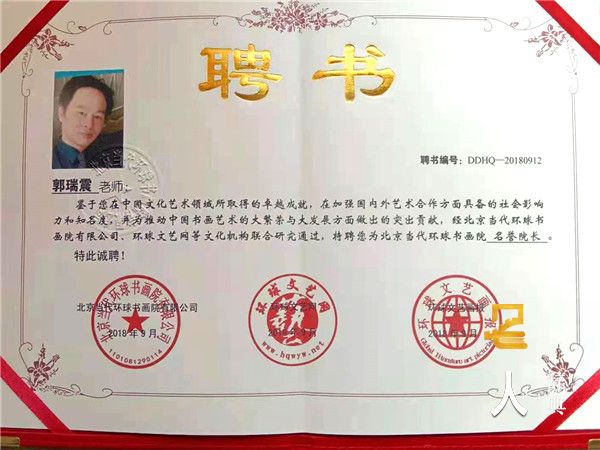 聘书
聘书编号：DDHQ—20180912
郭瑞震 老师：
鉴于您在中国文化艺术领域所取得的卓越成就，在加强国内外艺术合作方面具备的社会影响
力和知名度，并为推动中国书画艺术的大繁荣与大发展方面做出的突出贡献，经北京当代环球书
画院有限公司、环球文艺网等文化机构联合研究通过，特聘您为北京当代环球书画院 名誉院长 。
特此诚聘！
北京当代环球书画院有限公司
2018年9月
北京当代环球书画院有限公司
1101081290114
环球文艺网
2018年9月
环球文艺网
www.hqwyw.net
环球文艺画报
2018年9月
环球文艺画报
Global literature art pictorial
人